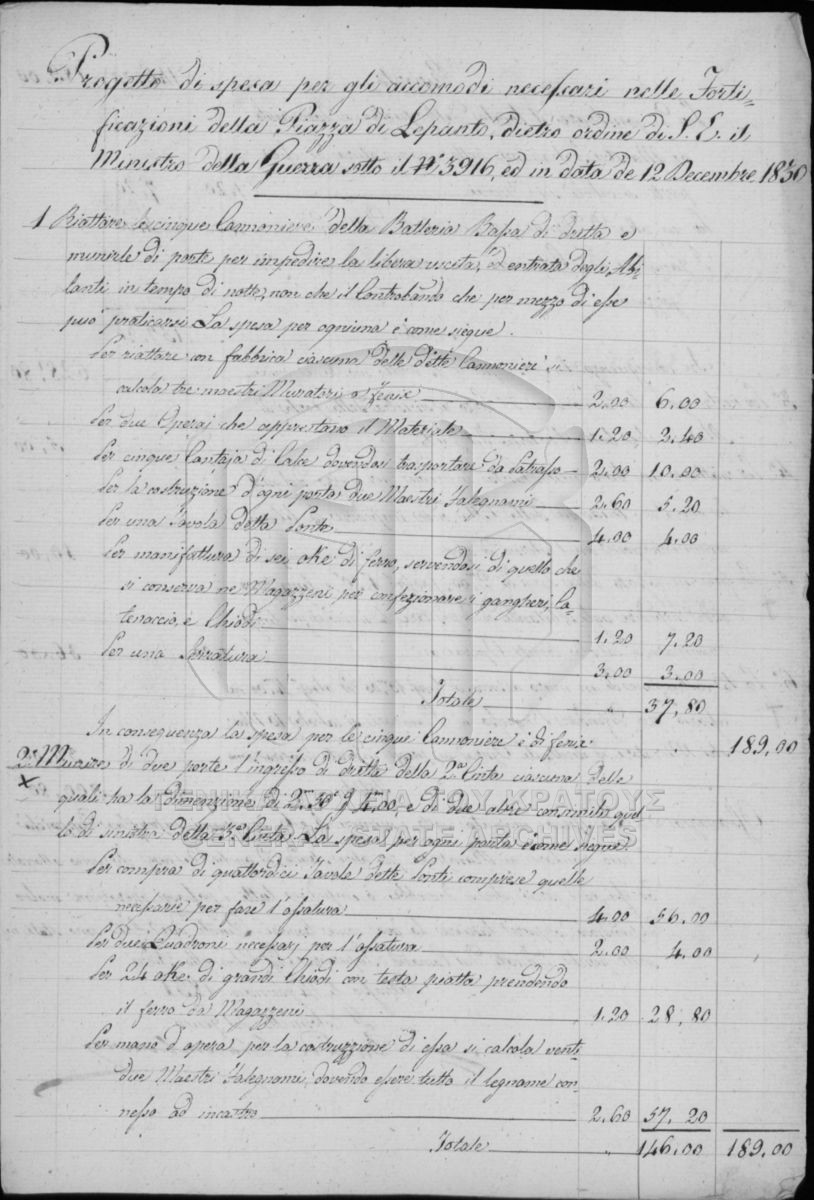 Progetto di spesa per gli accomodi necessari nelle Forti-
ficazioni della Piazza di Lepanto, dietro ordine di S. E. il
Ministro della Guerra sotto il N.º 3916, ed in data de 12 Decembre 1830
1 Riattare le cinque Cannoniere della Batteria Bassa di dritta e
munirle di porte per impedire la libera uscita, ed entrata degli Abi-
tanti in tempo di notte, non che il Contrabando che per mezzo di esse
può praticarsi. La spesa per ogniuna è come siegue.
Per riattare con fabbrica ciascuna delle dette Cannoniere si
calcola tre maestri Muratori a fenix 2.00 6.00
Per due Operaj che apprestano il Materiale 1.20 2.40
Per cinque Cantaja di Calce dovendosi trasportare da Patrasso 2.00 10.00
Per la costruzione d'ogni porta due Maestri Falegnami 2.60 5.20
Per una Tavola detta Ponte 4.00 4.00
Per manifattura di sei oke di ferro, servendosi di quello che
si conserva ne Magazzeni per confezionare i gangheri, Ca-
tenaccio, e Chiodi 1.20 7.20
Per una Serratura 3.00 3.00
Totale „ 37,80
In conseguenza la spesa per le cinque Cannoniere è di fenix 189,00
2º Munire di due porte l'ingresso di dritta della 2.da Cinta ciascuna delle
X
quali ha la dimenzione di 2.m 50 4.m 00, e di due altre consimili quel
lo di sinistra della 3.a Cinta. La spesa per ogni porta è come siegue.
ΓΕΝΙΚΑ ΑΡΧΕΙΑ ΤΟΥ ΚΡΑΤΟΥΣ
GENERAL STATE ARCHIVES
Per compra di quattordici Tavole dette Ponti comprese quelle
necessarie per fare l'ossatura 4.00 56.00
Per due Quadroni necessarj per l'ossatura 2.00 4.00
Per 24 oke di grandi Chiodi con testa piatta prendendo
il ferro da Magazzeni 1.20 28,80
Per mano d'opera per la costruzzione di essa si calcola venti-
due Maestri Falegnami, dovendo essere tutto il legname con-
nesso ad incastro 2.60 57.20
Totale „ 146.00 189.00